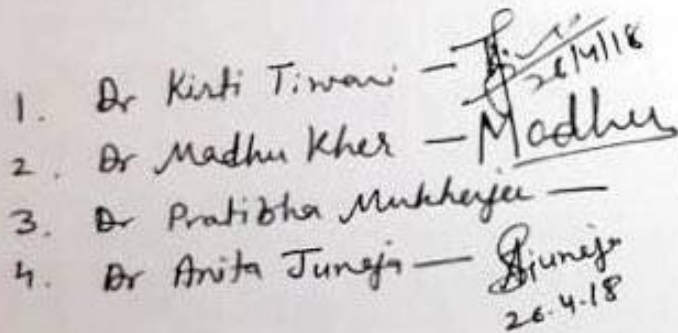 1. Dr Kirti Tiwari — 26/4/18
2. Dr Madhu Kher — Madhu
3. Dr Pratibha Mukherjee —
4. Dr Anita Juneja — AJuneja
26.4.18